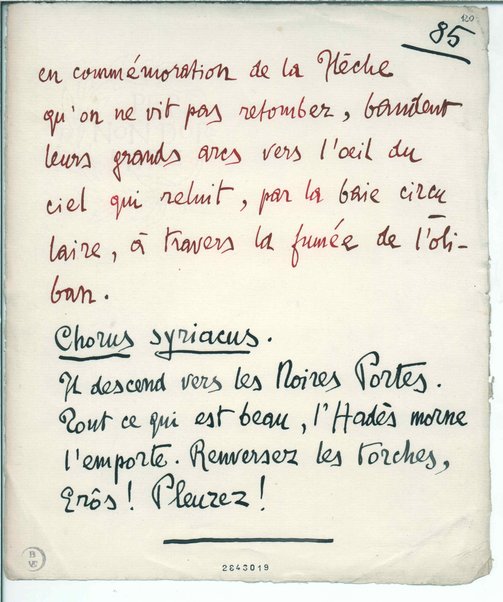 120
85
en commémoration de la Flèche
qu'on ne vit pas retomber, bandent
leurs grands arcs vers l'œil du
ciel qui reluit, par la baie circu
laire, à travers la fumée de l'oli-
ban.
Chorus syriacus.
Il descend vers les Noires Portes.
Tout ce qui est beau, l'Hadès morne
l'emporte. Renversez les torches,
Erôs! Pleurez!
2643019